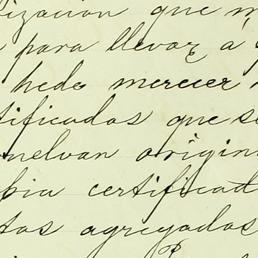 lizacion que m
para llevar á
hede merecer
tificados que se
vuelvan origin
pia certificad
tos agregados